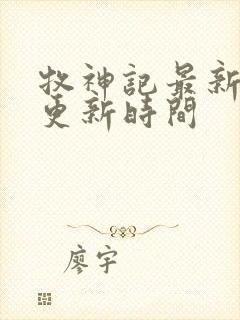 牧神記最新
更新時間
廖宇